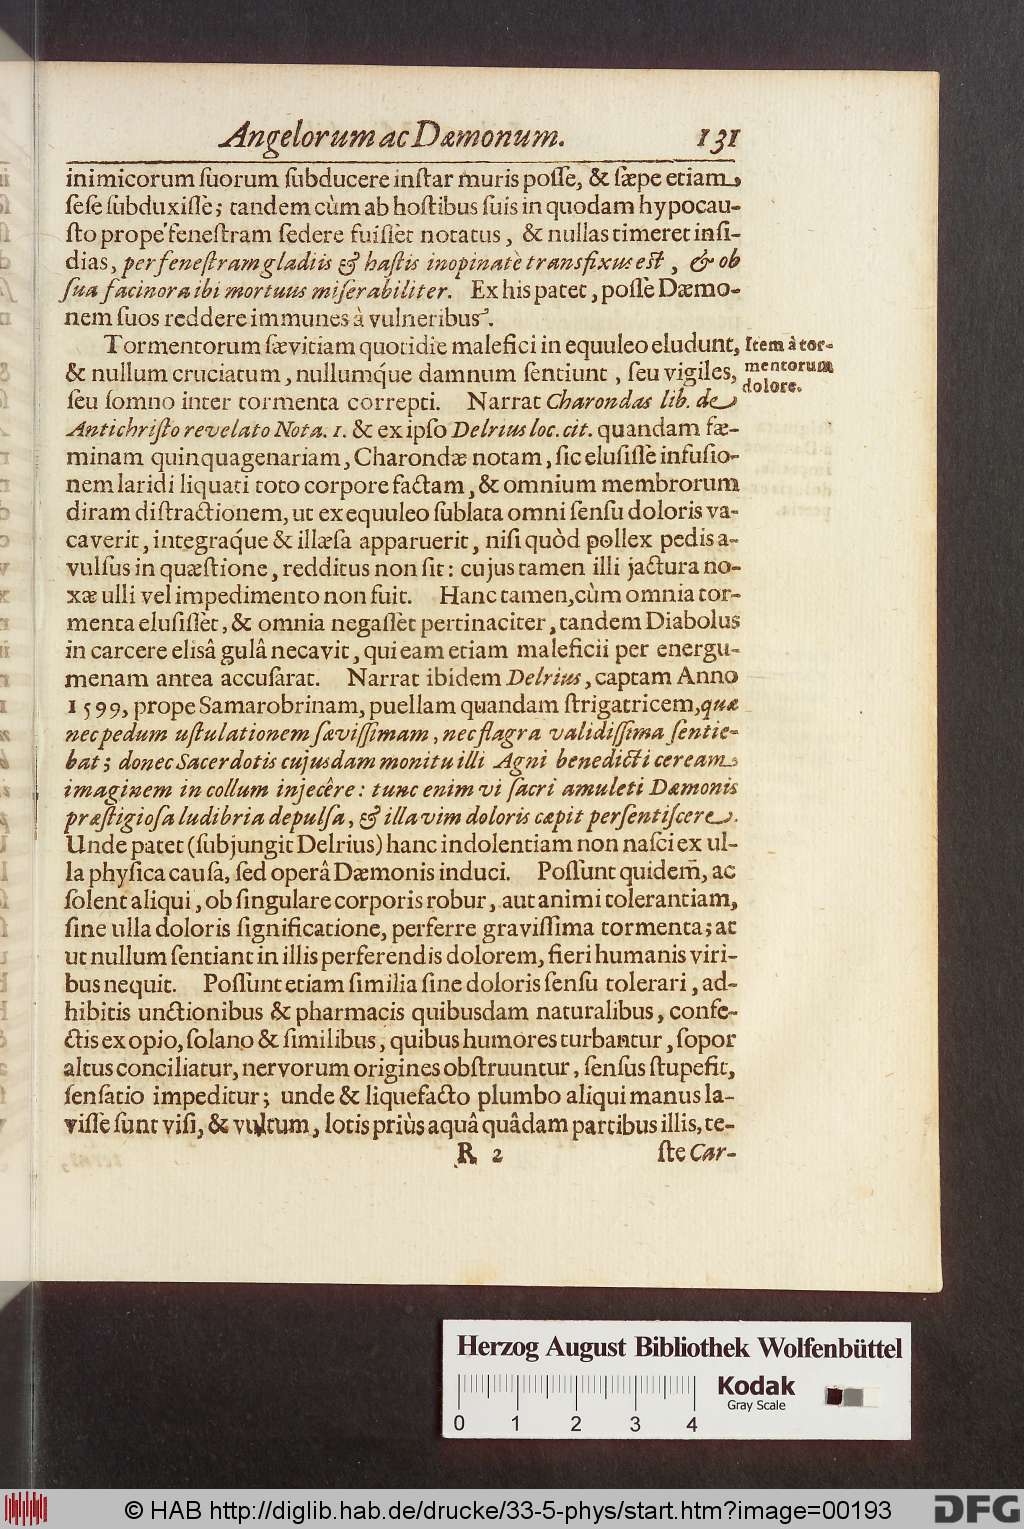 Angelorum ac Dæmonum. 131
inimicorum ſuorum ſubducere inſtar muris poſſe, & ſæpe etiam
ſeſe ſubduxiſſe; tandem cùm ab hoſtibus ſuis in quodam hypocau-
ſto prope feneſtram ſedere fuiſſet notatus, & nullas timeret inſi-
dias, per feneſtram gladiis & haſtis inopinatè transfixus eſt, & ob
ſua facinora ibi mortuus miſerabiliter. Ex his patet, poſſe Dæmo-
nem ſuos reddere immunes à vulneribus.
Tormentorum ſævitiam quotidie malefici in equuleo eludunt,
Item à tor-
mentorum
dolore.
& nullum cruciatum, nullumq́ue damnum ſentiunt, ſeu vigiles,
ſeu ſomno inter tormenta correpti. Narrat Charondas lib. de
Antichriſto revelato Nota. 1. & ex ipſo Delrius loc. cit. quandam fæ-
minam quinquagenariam, Charondæ notam, ſic eluſiſſe infuſio-
nem laridi liquati toto corpore factam, & omnium membrorum
diram diſtractionem, ut ex equuleo ſublata omni ſenſu doloris va-
caverit, integraq́ue & illæſa apparuerit, niſi quòd pollex pedis a-
vulſus in quæſtione, redditus non ſit: cujus tamen illi jactura no-
xæ ulli vel impedimento non fuit. Hanc tamen, cùm omnia tor-
menta eluſiſſet, & omnia negaſſet pertinaciter, tandem Diabolus
in carcere elisâ gulâ necavit, qui eam etiam maleficii per energu-
menam antea accuſarat. Narrat ibidem Delrius, captam Anno
1599, prope Samarobrinam, puellam quandam ſtrigatricem, quæ
nec pedum uſtulationem ſæviſſimam, nec flagra validiſſima ſentie-
bat; donec Sacerdotis cujusdam monitu illi Agni benedicti ceream
imaginem in collum injecêre: tunc enim vi ſacri amuleti Dæmonis
præſtigioſa ludibria depulſa, & illa vim doloris cæpit perſentiſcere.
Unde patet (ſubjungit Delrius) hanc indolentiam non naſci ex ul-
la phyſica cauſa, ſed operâ Dæmonis induci. Poſſunt quidem̄, ac
ſolent aliqui, ob ſingulare corporis robur, aut animi tolerantiam,
ſine ulla doloris ſignificatione, perferre graviſſima tormenta; at
ut nullum ſentiant in illis perferendis dolorem, fieri humanis viri-
bus nequit. Poſſunt etiam ſimilia ſine doloris ſenſu tolerari, ad-
hibitis unctionibus & pharmacis quibusdam naturalibus, confe-
ctis ex opio, ſolano & ſimilibus, quibus humores turbantur, ſopor
altus conciliatur, nervorum origines obſtruuntur, ſenſus ſtupefit,
ſenſatio impeditur; unde & liquefacto plumbo aliqui manus la-
viſſe ſunt viſi, & vultum, lotis priùs aquâ quâdam partibus illis, te-
R 2 ſte Car-
Herzog August Bibliothek Wolfenbüttel
Kodak
Gray Scale
0 1 2 3 4
© HAB http://diglib.hab.de/drucke/33-5-phys/start.htm?image=00193
DFG